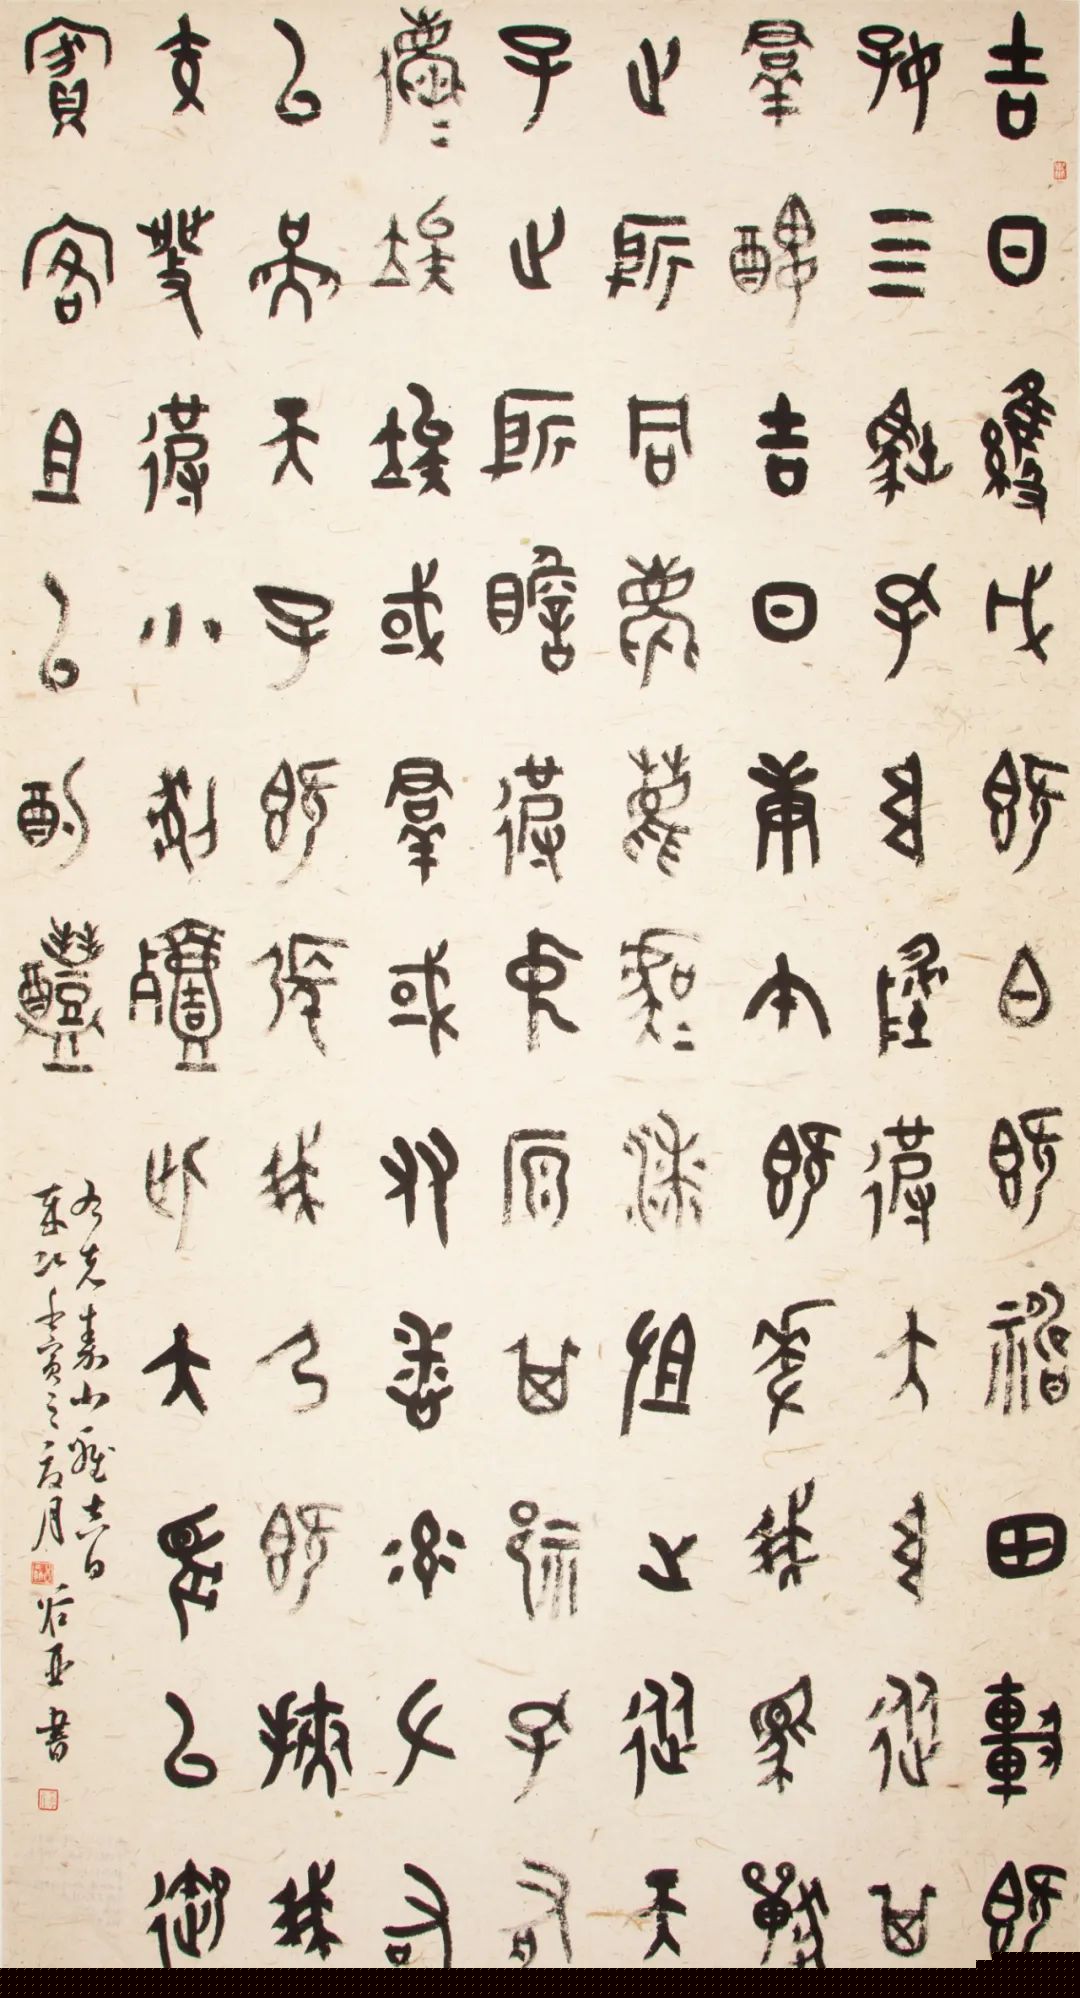 吉日維戊既白既禱田車既
好四牡孔阜升彼大阜從其
羣醜吉日庚午既差我馬獸
之所同麀鹿麌=漆沮之從天
子之所瞻彼中原其祁孔有
儦=俟俟或羣或友悉率左右
以燕天子既張我弓既挾我
矢發彼小豝殪此大兕以御
賓客且以酌醴
右先秦小雅吉日
壬寅之夏月
谷亚書